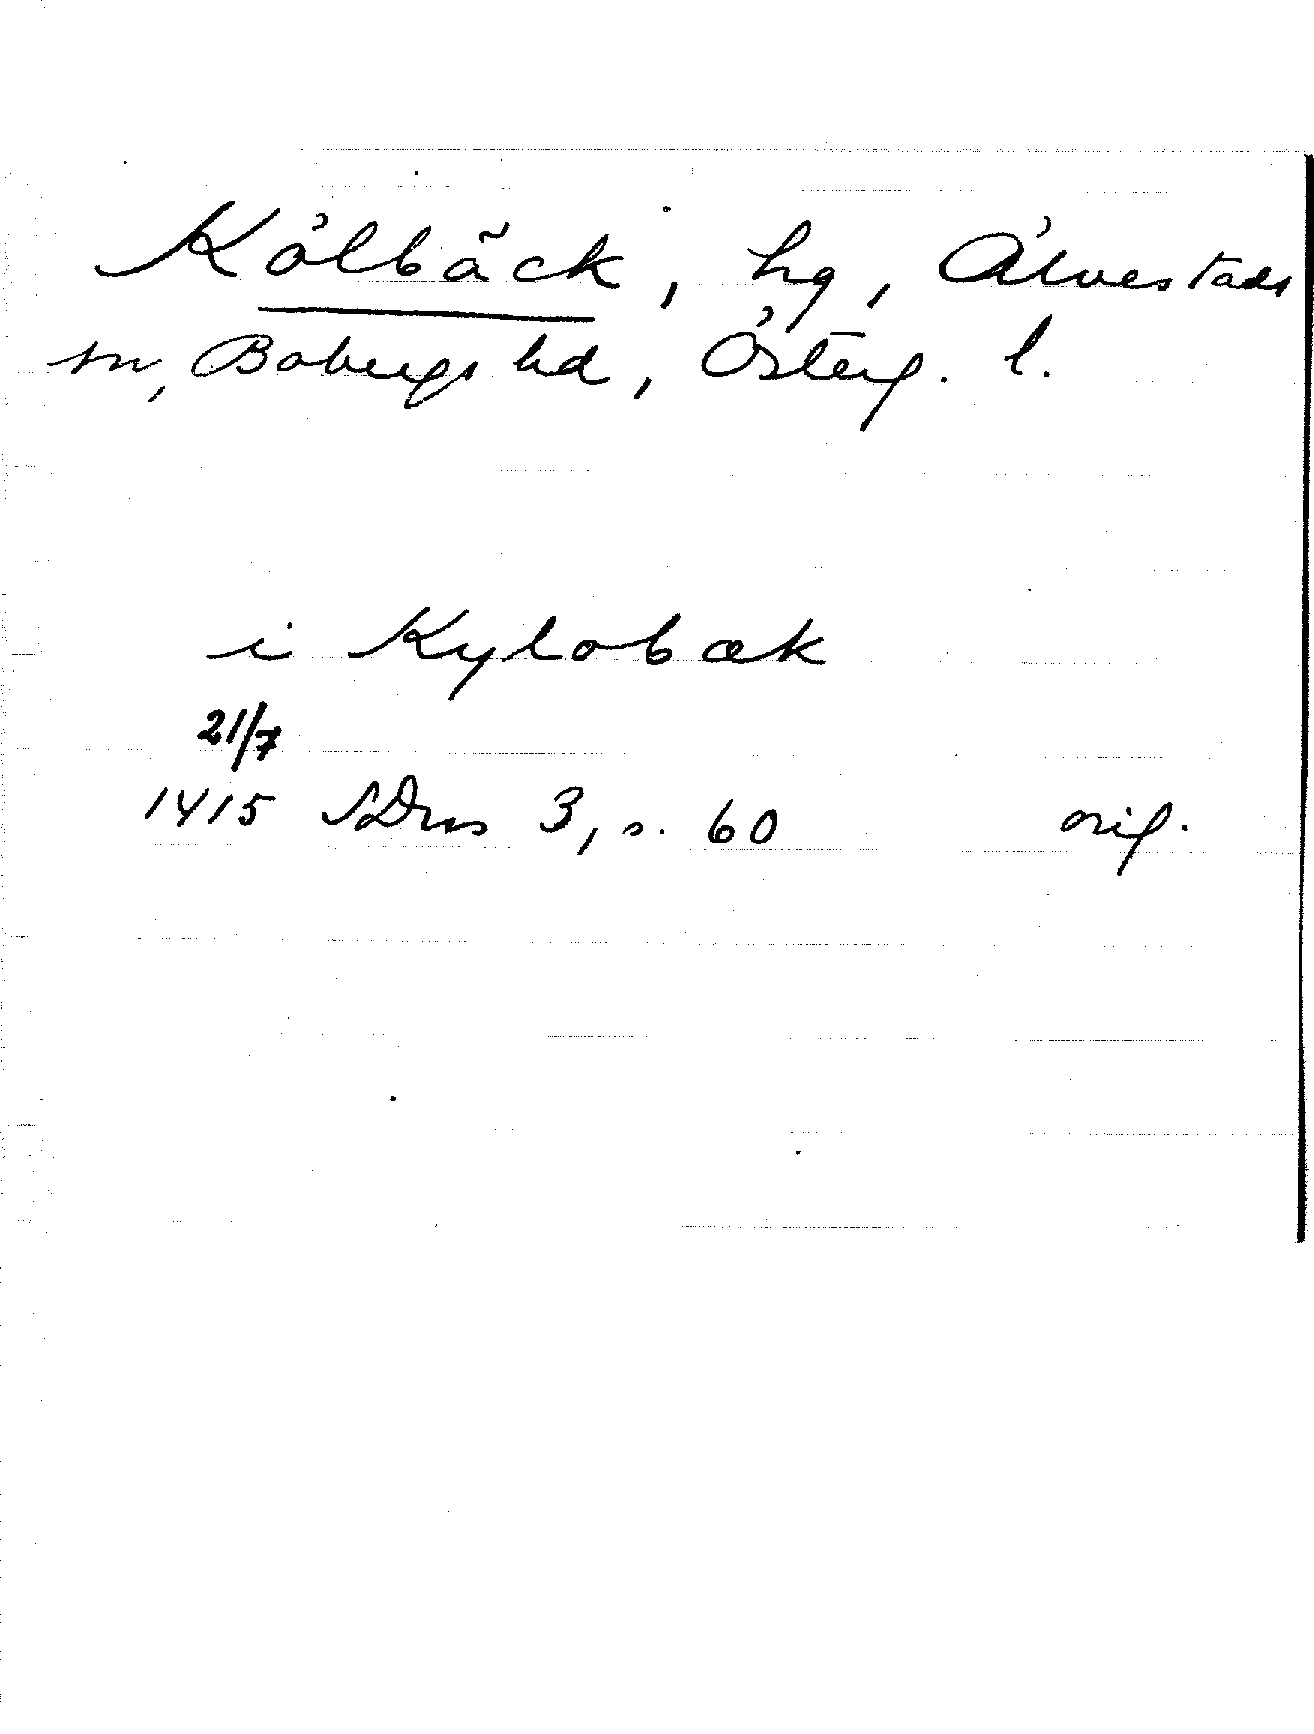 Kölbäck, hg, Älvestads
sn, Bobergs hd, Österg. l.
i Kylobæk
21/7
1415 SDns 3, s. 60 orig.